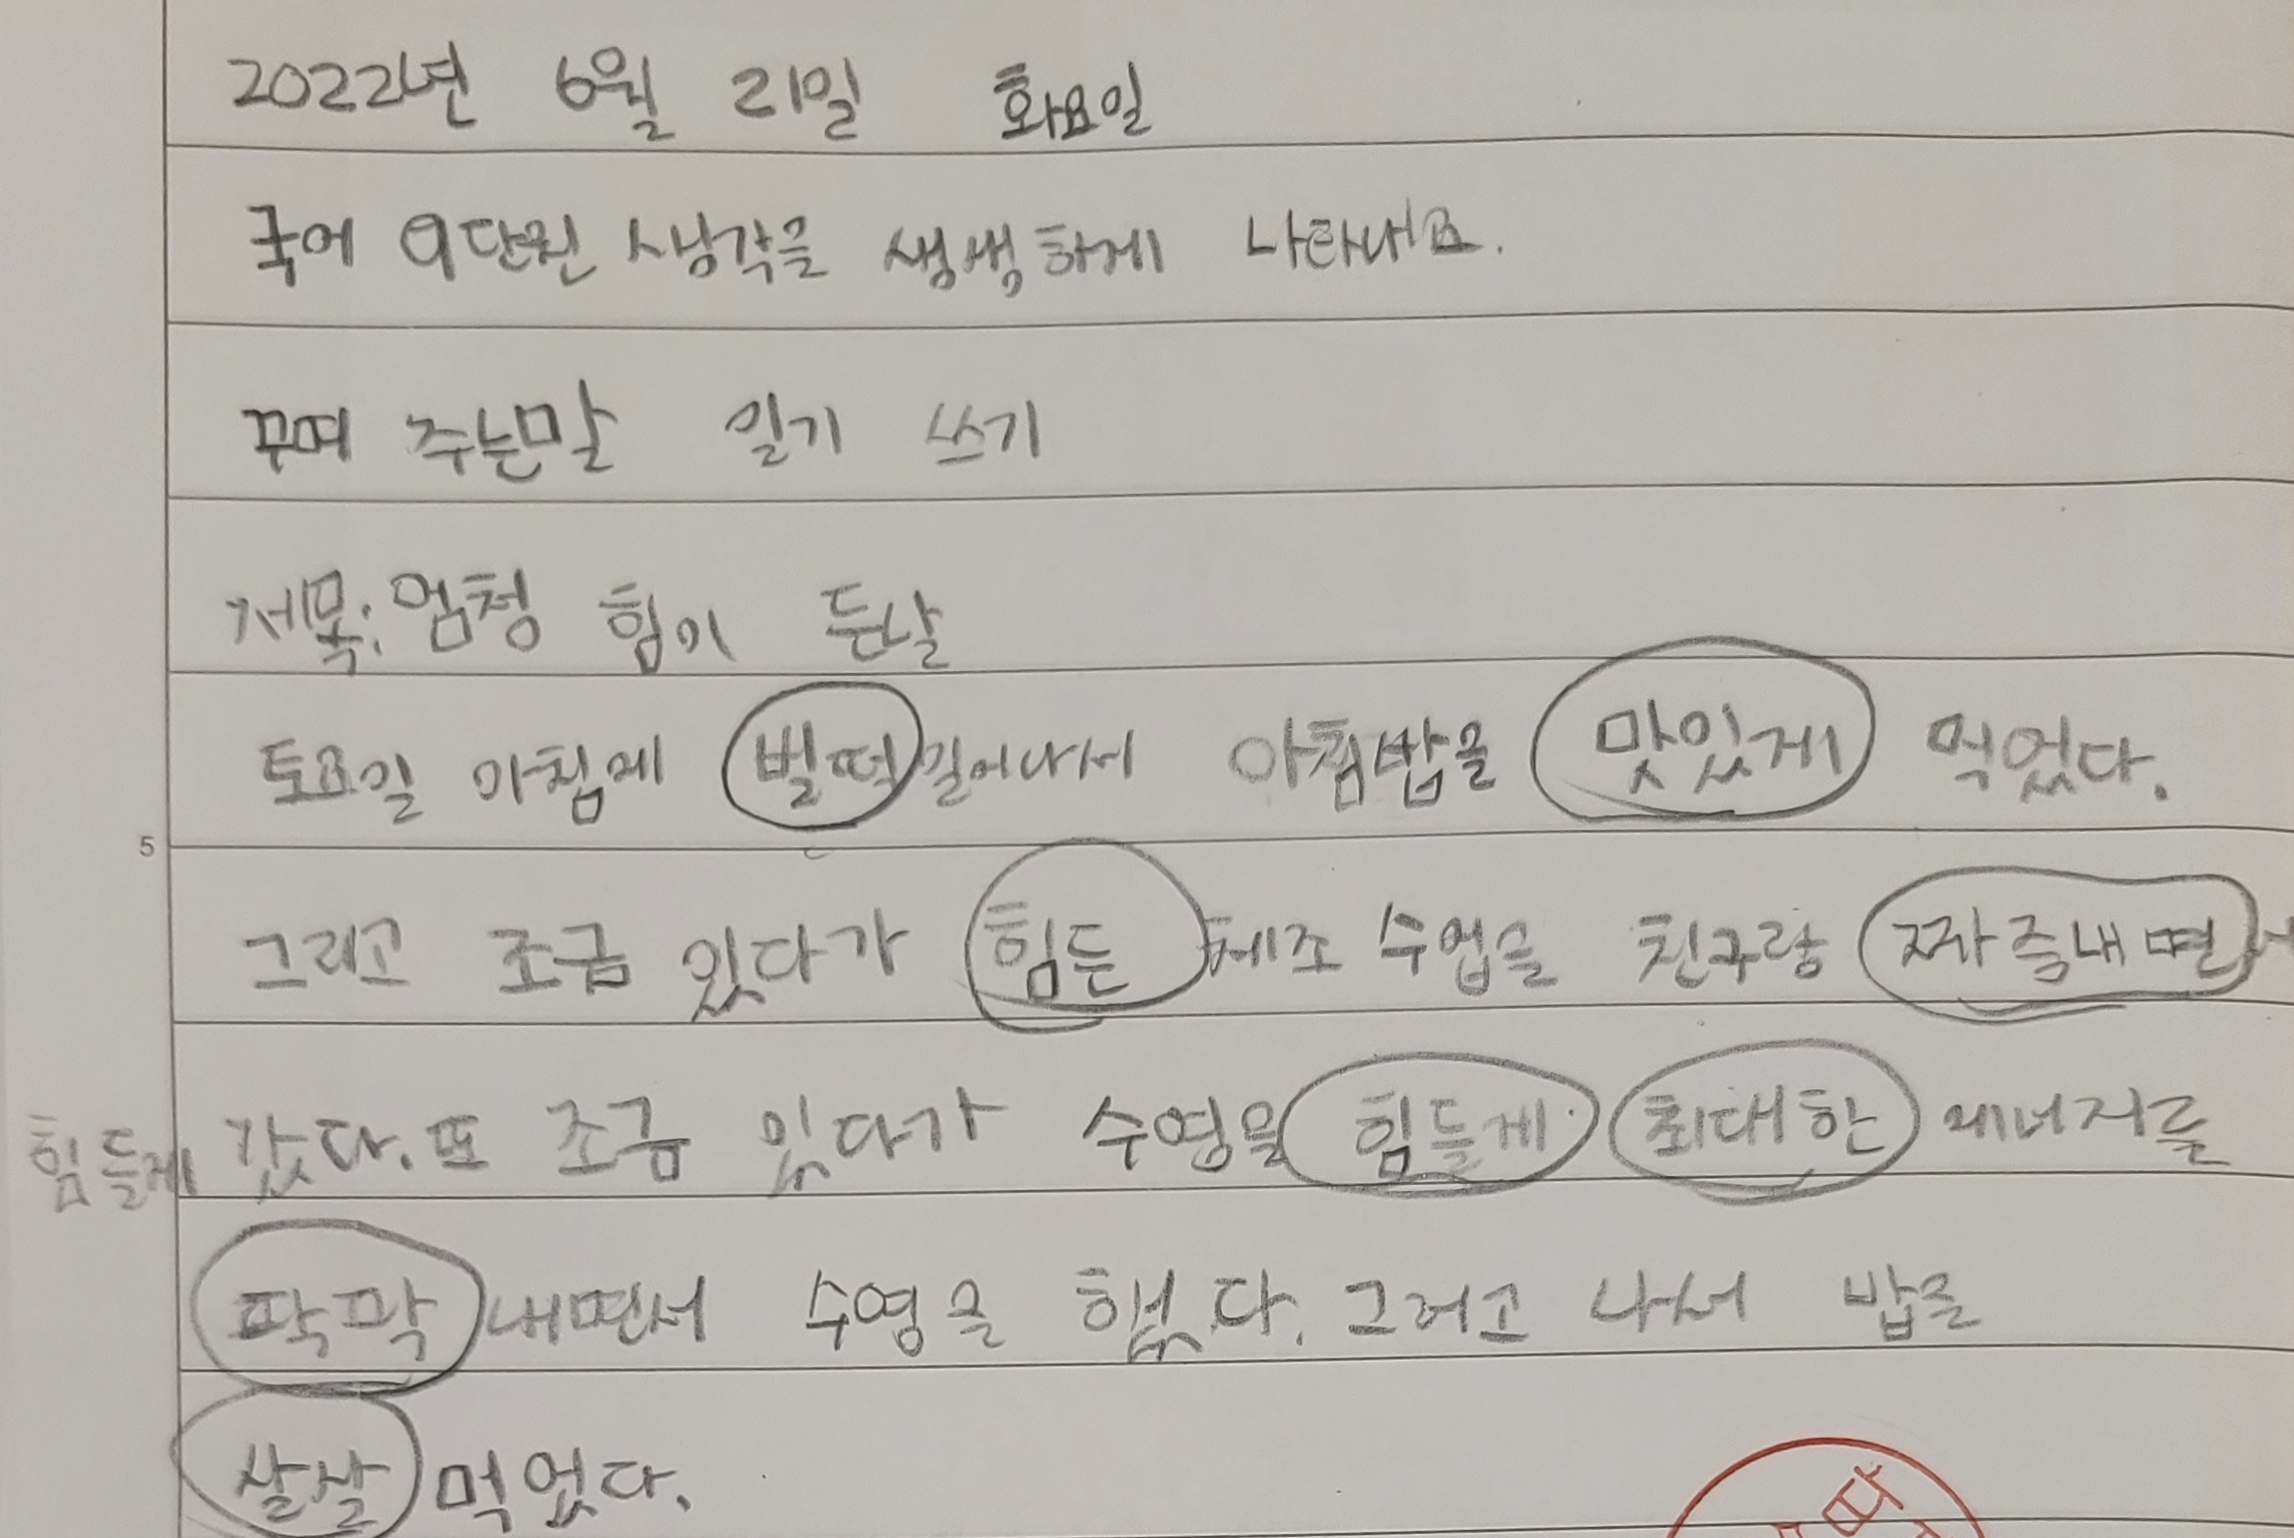 2022년 6월 21일 화요일
국어 9단원 생각을 생생하게 나타내요.
꾸며 주는말 일기 쓰기
제목: 엄청 힘이 든날
토요일 아침에 벌떡 일어나서 아침밥을 맛있게 먹었다.
5
그리고 조금 있다가 힘든 체조 수업을 친구랑 짜증내면서
힘들게 갔다. 또 조금 있다가 수영을 힘들게 최대한 에너지를
팍팍 내면서 수영을 했다. 그러고 나서 밥을
살살 먹었다.